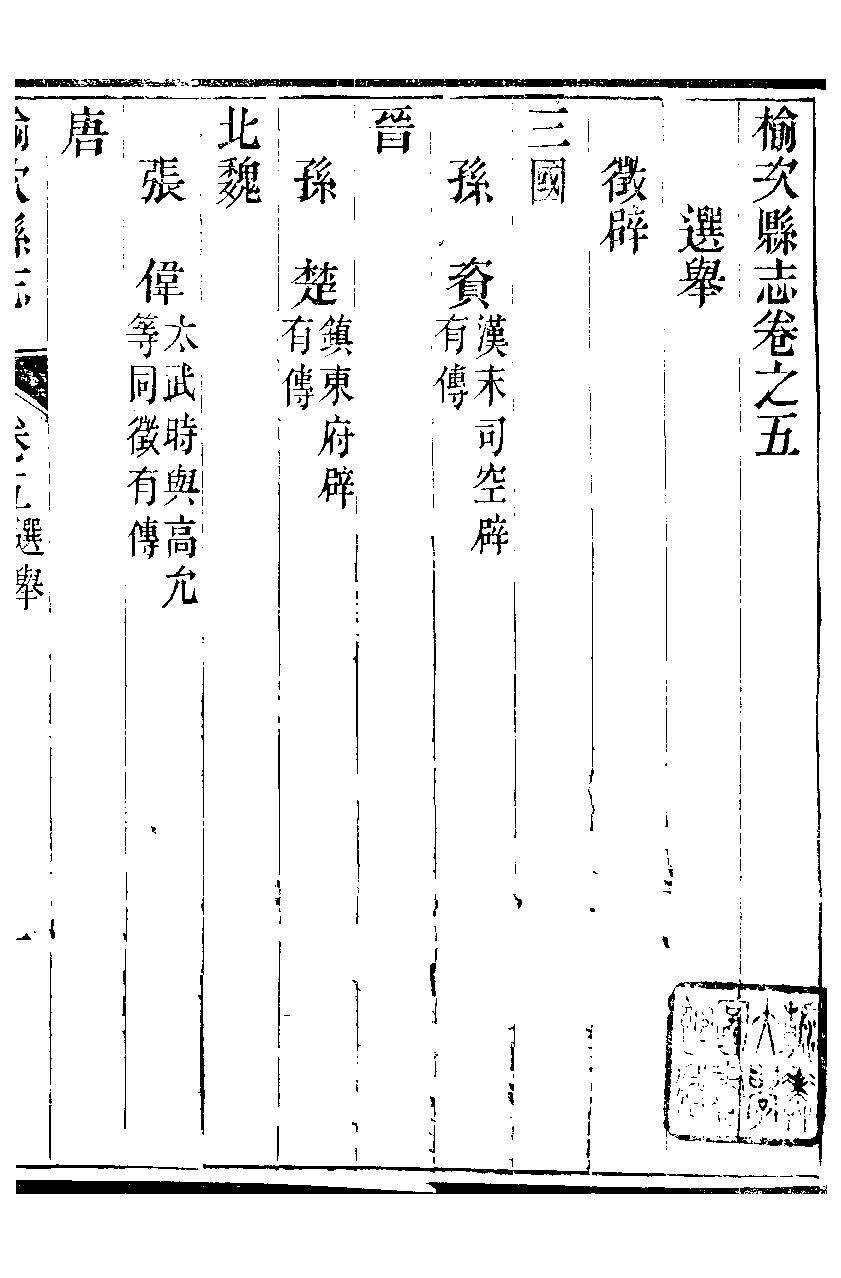 榆次縣志卷之五
選舉
徵辟
三國
孫　資漢末司空辟
有傳
晉
孫　楚鎮東府辟
有傳
北魏
張　偉太武時與高允
等同徵有傳
唐
榆次縣志　卷五選舉　一